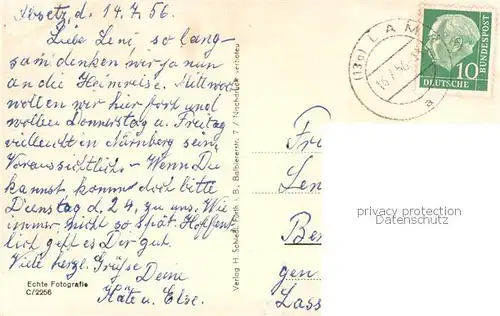 d. 14.7.56.
Liebe Leni, so lang-
sam denken wir ja nun
an die Heimreise. Mittwoch
wollen wir hier fort und
wollen Donnerstag u. Freitag
vielleicht in Nürnberg sein.
Voraussichtlich - Wenn Du
kannst komm doch bitte
Dienstag d. 24. zu uns. Wie
immer, nicht so spät. Hoffent-
lich geht es Dir gut.
Viele herzl. Grüße
Deine
Käte u. Else.
Echte Fotografie
C/2256
Verlag H. Schließ, Fürth i. B., Balbiererstr. 7 / Nachdruck verboten
(13a) LAM
a
10
DEUTSCHE
BUNDESPOST
Fr
Len
Be
gen
Lass
privacy protection
Datenschutz